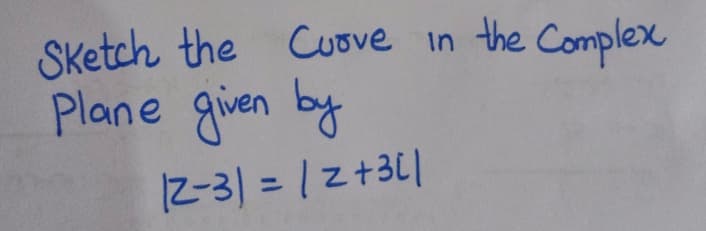 Sketch the Curve in the Complex
Plane given by
|z-3| = |z+3i|